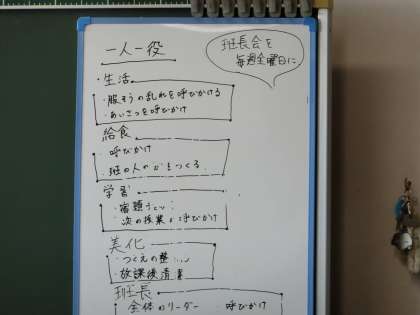 一人一役
班長会を
毎週金曜日に
・生活
・服そうの乱れを呼びかける
・あいさつを呼びかけ
給食
・呼びかけ
・班の人の を つくる
学習
・宿題
・次の授業 呼びかけ
美化
・つくえの整
・放課後清
班長
全体のリーダー ・呼びかけ